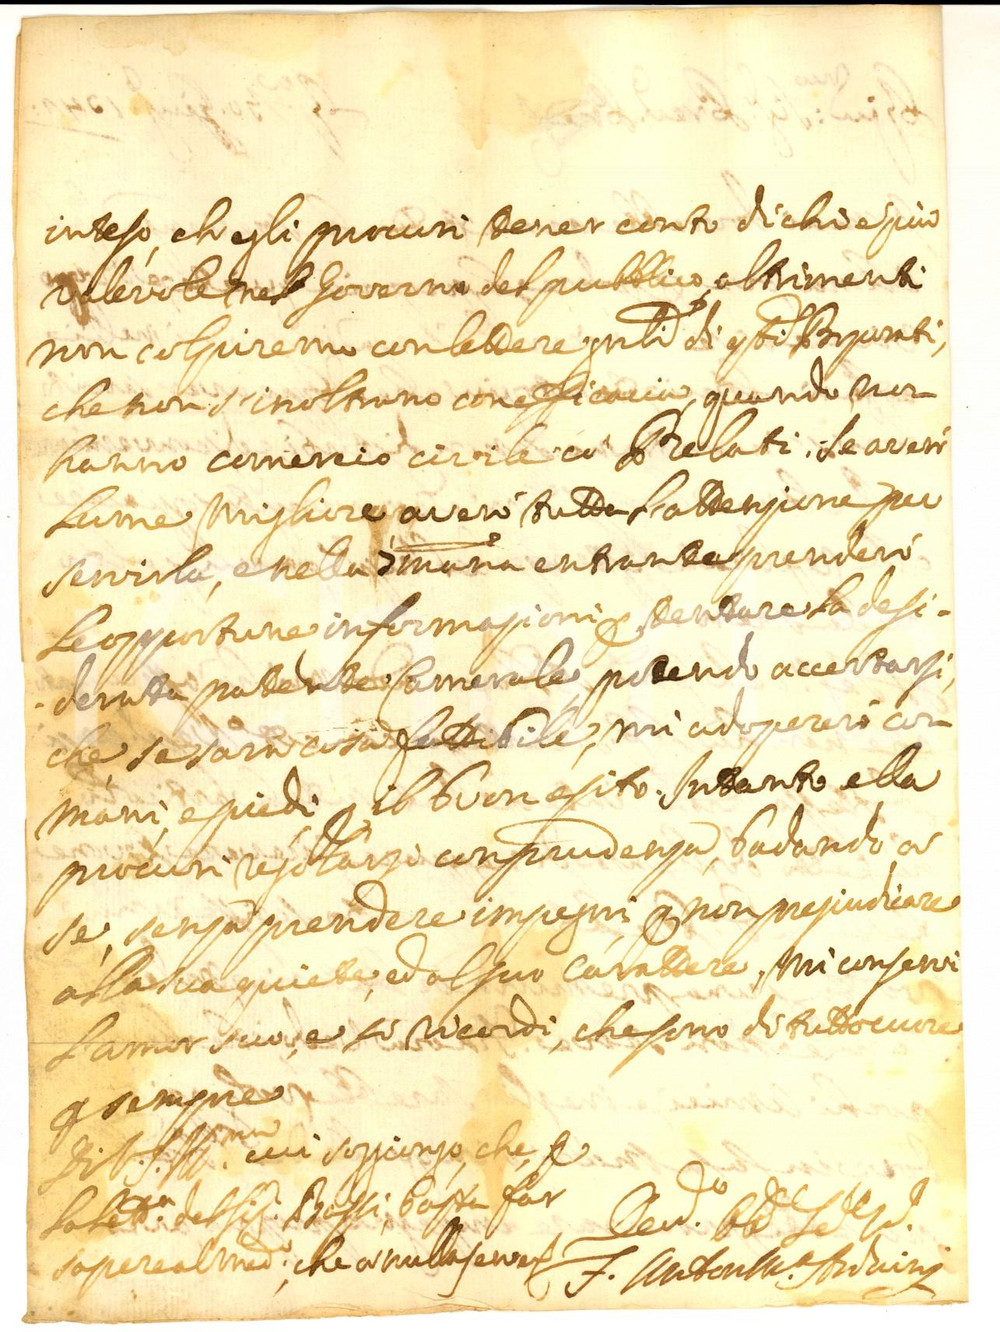 inteso, ch'egli procuri tener conto di chi è più
valevole nel Governo del pubblico, altrimenti
non colpiremo con lettere di Deputati,
che non s'inoltrano con efficacia, quando non
hanno comercio civile co' Prelati. Se averò
lume migliore averò tutta l'attenzione per
servirla, e nella 7mana entrante prenderò
le opportune informazioni p tentare la desi-
derata patente Camerale, potendo accertarsi,
che, se sarà cosa fattibile, mi adopererò con
mani, e piedi p il buon esito. Intanto ella
procuri regolarsi con prudenza, badando a
se, senza prendere impegni, p non pregiudicare
alla sua quiete, ed al suo Carattere. Mi conservi
l'amor suo, e si ricordi, che sono di tutto cuore
p sempre
Di V. S. Ill.ma cui soggiungo, che p
la lett.ra del Sig.r Bassi, basta far
sapere al med.o, che a nulla serve
F. Anton M.a Arduini